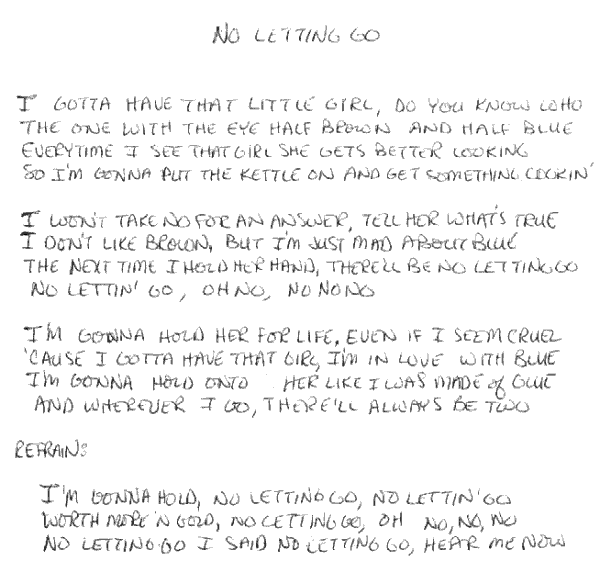 NO LETTING GO
I GOTTA HAVE THAT LITTLE GIRL, DO YOU KNOW WHO
THE ONE WITH THE EYE HALF BROWN AND HALF BLUE
EVERYTIME I SEE THAT GIRL SHE GETS BETTER LOOKING
SO I'M GONNA PUT THE KETTLE ON AND GET SOMETHING COOKIN'
I WON'T TAKE NO FOR AN ANSWER, TELL HER WHAT'S TRUE
I DON'T LIKE BROWN, BUT I'M JUST MAD ABOUT BLUE
THE NEXT TIME I HOLD HER HAND, THERE'LL BE NO LETTING GO
NO LETTIN' GO, OH NO, NO NO NO
I'M GONNA HOLD HER FOR LIFE, EVEN IF I SEEM CRUEL
'CAUSE I GOTTA HAVE THAT GIRL, I'M IN LOVE WITH BLUE
I'M GONNA HOLD ONTO HER LIKE I WAS MADE of GLUE
AND WHEREVER I GO, THERE'LL ALWAYS BE TWO
REFRAIN:
I'M GONNA HOLD, NO LETTING GO, NO LETTIN' GO
WORTH MORE 'N GOLD, NO LETTING GO, OH NO, NO, NO
NO LETTING GO I SAID NO LETTING GO, HEAR ME NOW